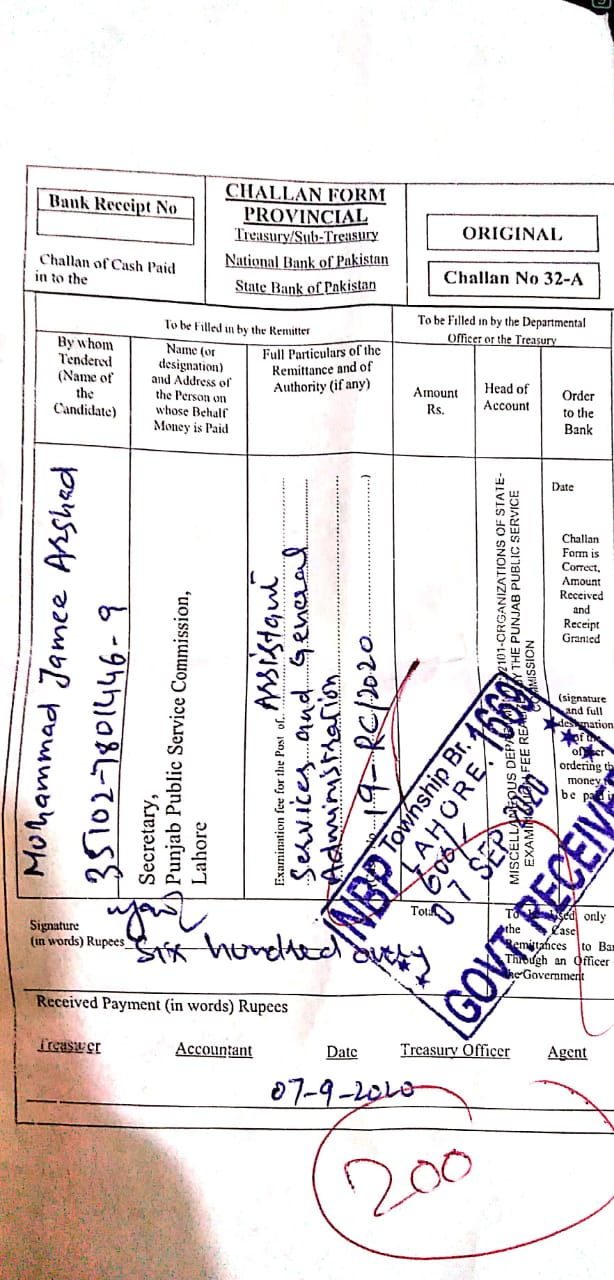 Bank Receipt No
Challan of Cash Paid
in to the
CHALLAN FORM
PROVINCIAL
Treasury/Sub-Treasury
National Bank of Pakistan
State Bank of Pakistan
ORIGINAL
Challan No 32-A
To be Filled in by the Remitter
To be Filled in by the Departmental
Officer or the Treasury
By whom
Tendered
(Name of
the
Candidate)
Name (or
designation)
and Address of
the Person on
whose Behalf
Money is Paid
Full Particulars of the
Remittance and of
Authority (if any)
Amount
Rs.
Head of
Account
Order
to the
Bank
Muhammad Jamee Arshad
35102-7801446-9
Secretary,
Punjab Public Service Commission,
Lahore
Examination fee for the Post of Assistant
Services and General
Administration
19-RC/2020
600/
ORGANIZATIONS OF STATE-
MISCELLANEOUS THE PUNJAB PUBLIC SERVICE
EXAMINATION FEE COMMISSION
Date
Challan
Form is
Correct,
Amount
Received
and
Receipt
Granted
(signature
and full
designation
of the
officer
ordering
money
be
NBP Township Br. 1669
LAHORE.
07 SEP 2020
GOVT. RECEIVE
Signature
(in words) Rupees Six hundred only
Total
only
the Case
Remittances to
Through an Officer
the Government
Received Payment (in words) Rupees
Treasurer
Accountant
Date
Treasury Officer
Agent
07-9-2020
200